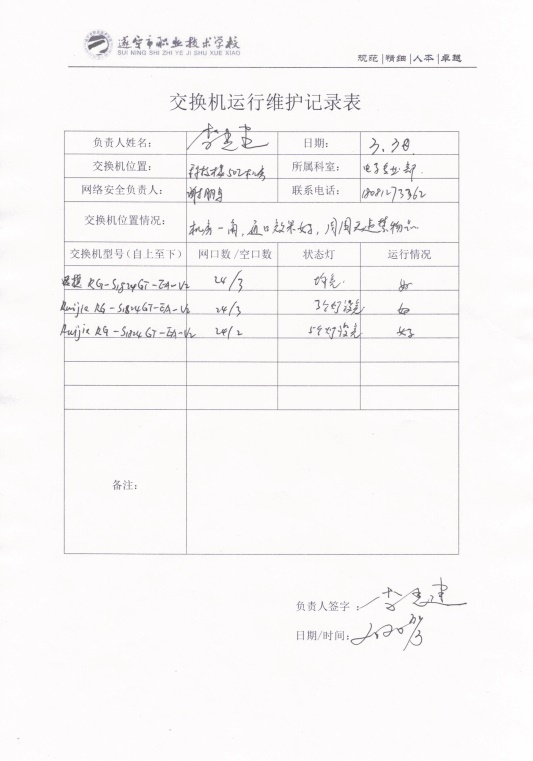 遂宁市职业技术学校
SUI NING SHI ZHI YE JI SHU XUE XIAO
规范|精细|人本|卓越
交换机运行维护记录表
负责人姓名： 日期： 3.30
交换机位置： 科技楼502机房 所属科室： 电子专业部.
网络安全负责人： 谢鹏 联系电话： 18081273362
交换机位置情况： 机房一角，通口效果好，周围无违禁物品
交换机型号（自上至下） 网口数/空口数 状态灯 运行情况
锐捷 RG-S1824GT-EA-V2 24/3 均亮. 好
Ruijie RG-S1824GT-EA-V2 24/3 3个灯没亮 好
Ruijie RG-S1824GT-EA-V2 24/2 5个灯没亮 好
备注：
负责人签字：
日期/时间：